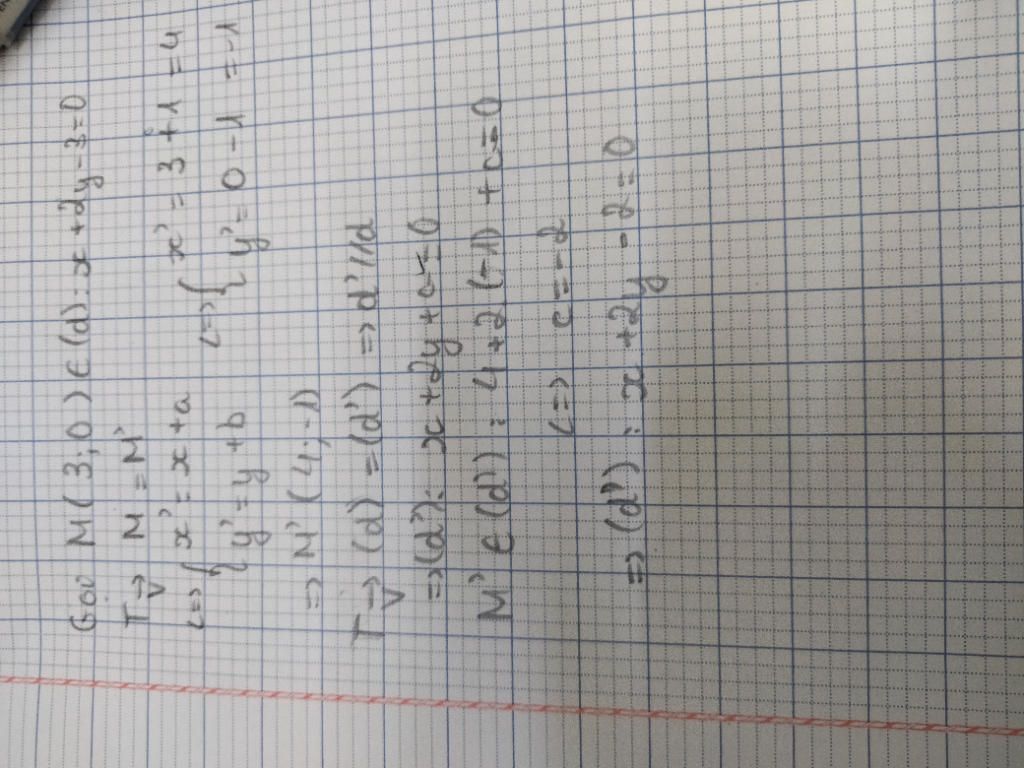 Gọi M(3;0) ∈ (d): x+2y-3=0
T→v M = M'
<=> { x' = x+a <=> { x' = 3+1 = 4
{ y' = y+b { y' = 0-1 = -1
=> M'(4;-1)
T→v (d) = (d') => d'//d
=> (d'): x+2y+c=0
M' ∈ (d'): 4+2.(-1)+c=0
<=> c=-2
=> (d'): x+2y-2=0